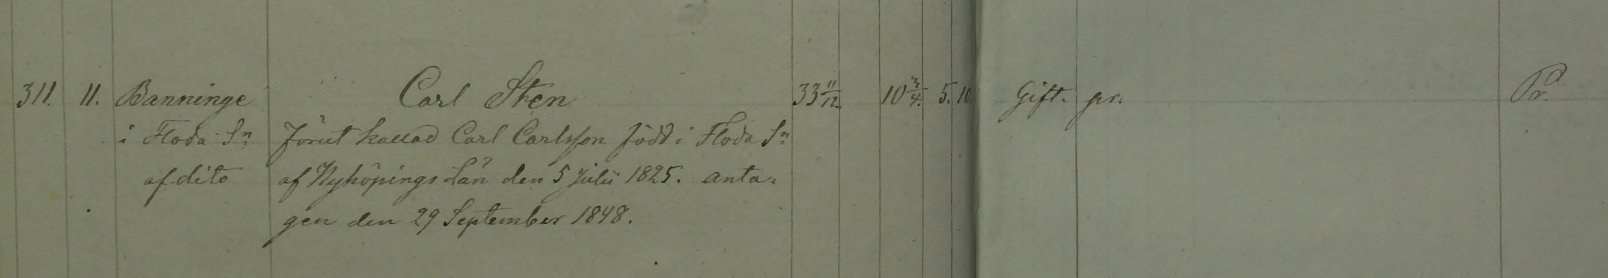 311. 11. Banninge Carl Sten 33 11/12 10 3/4. 5. 10 Gift. pr. Pr.
i Floda Sn: förut kallad Carl Carlsson född i Floda Sn:
af dito af Nyköpings Län den 5 Julii 1825. anta-
gen den 29 September 1848.